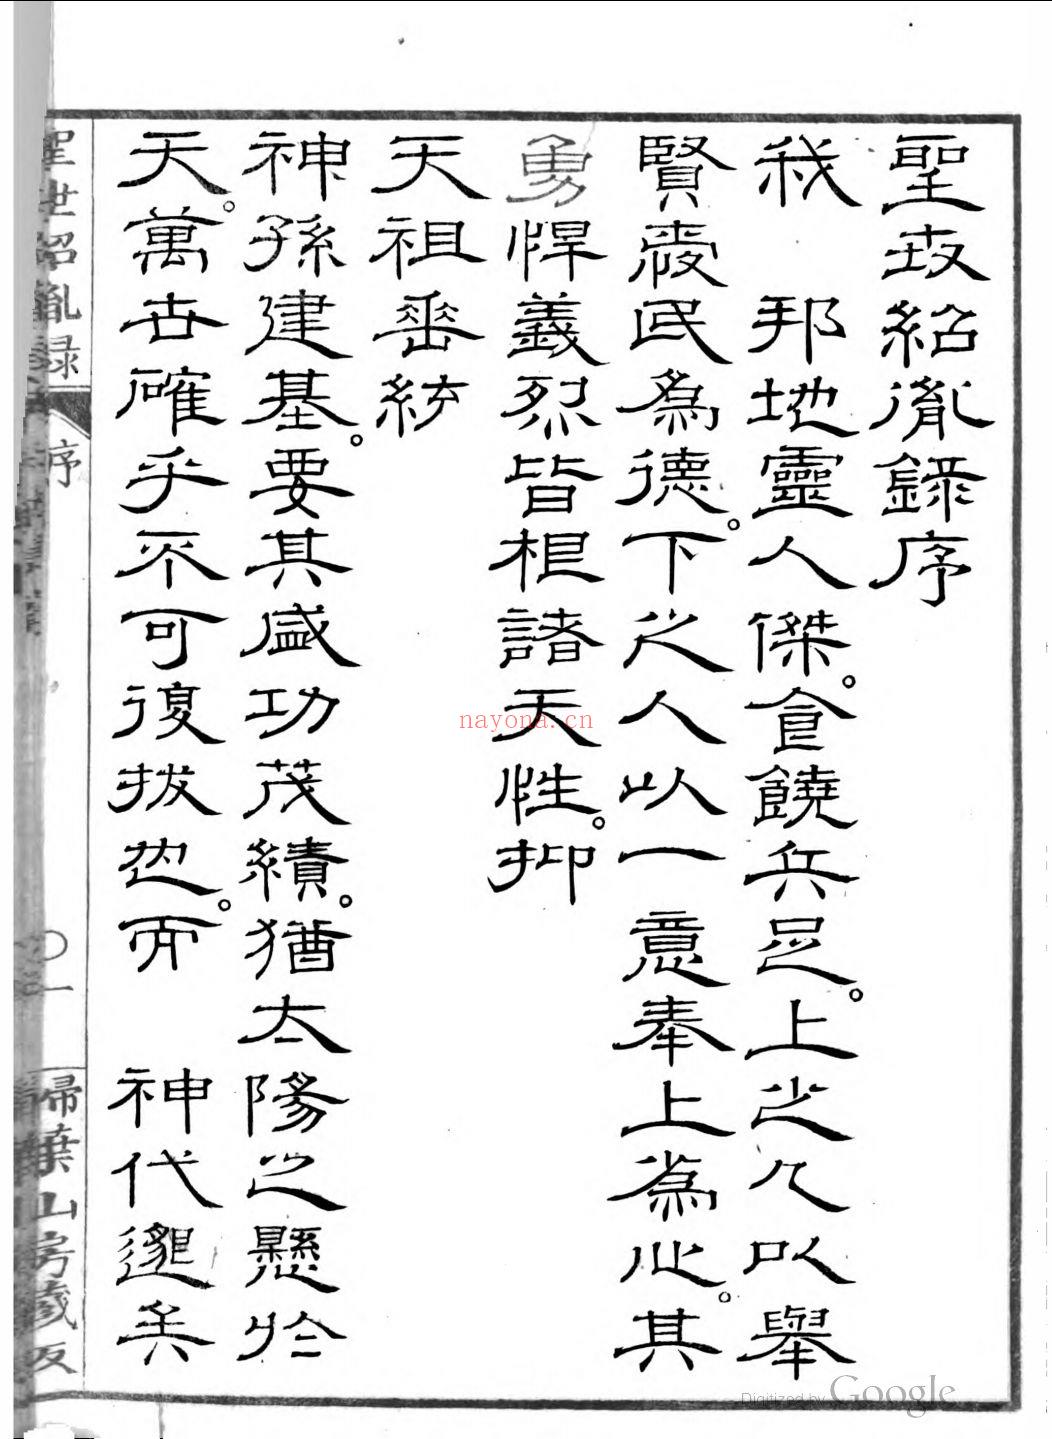 聖世紹胤録序
我　邦地靈人傑。食饒兵足。上之人以舉
賢愛民為德。下之人以一意奉上為心。其
勇悍義烈皆根諸天性。抑
天祖垂統
神孫建基。要其盛功茂績。猶太陽之懸於
天。萬古確乎不可復拔也。而　神代邈矣
聖世紹胤録
序
〇一
掃葉山房藏板
nayona.cn
Digitized by Google